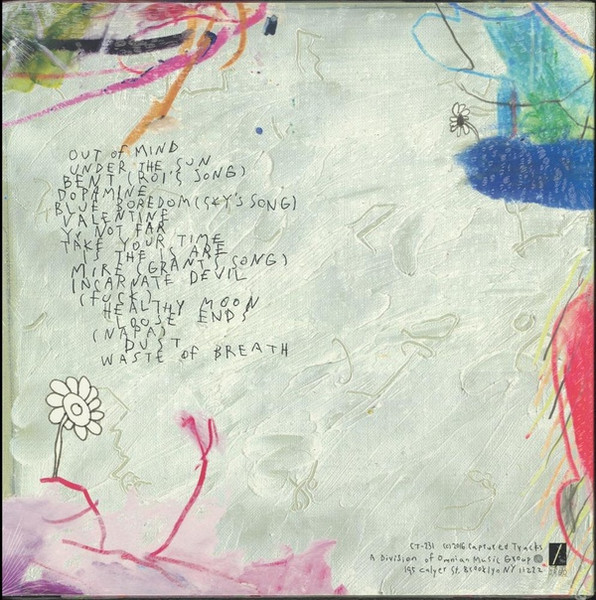 OUT OF MIND
UNDER THE SUN
BENT (ROI'S SONG)
DOPAMINE
BLUE BOREDOM (SKY'S SONG)
VALENTINE
YR NOT FAR
TAKE YOUR TIME
IS THE IS ARE
MIRE (GRANT'S SONG)
INCARNATE DEVIL
(FUCK)
HEALTHY MOON
LOOSE ENDS
(NAPA)
DUST
WASTE OF BREATH
CT-231 (c) 2016 Captured Tracks
A Division of Omnian Music Group
195 Calyer St. Brooklyn NY 11222